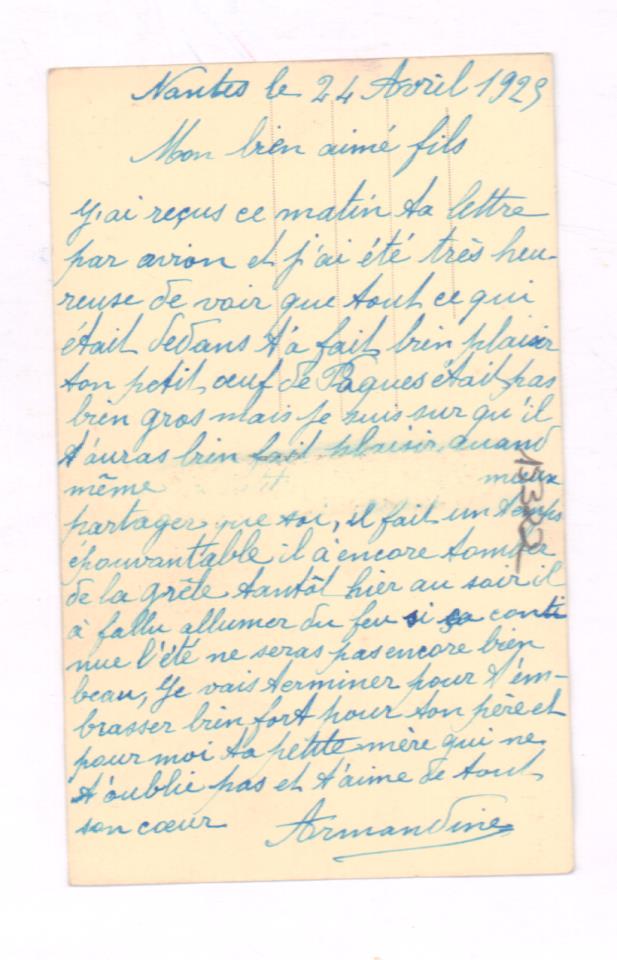 Nantes le 24 Avril 1925
Mon bien aimé fils
J'ai reçus ce matin ta lettre
par avion et j'ai été très heu-
reuse de voir que tout ce qui
était dedans t'a fait bien plaisir
ton petit œuf de Pâques était pas
bien gros mais je suis sur qu'il
t'auras bien fait plaisir quand
même
partager que toi, il fait un temps
épouvantable il à encore tomber
de la grêle tantôt hier au soir il
à fallu allumer du feu si ça conti
nue l'été ne seras pas encore bien
beau, Je vais terminer pour t'em-
brasser bien fort pour ton père et
pour moi ta petite mère qui ne
t'oublie pas et t'aime de tout
son cœur Armandine
13322